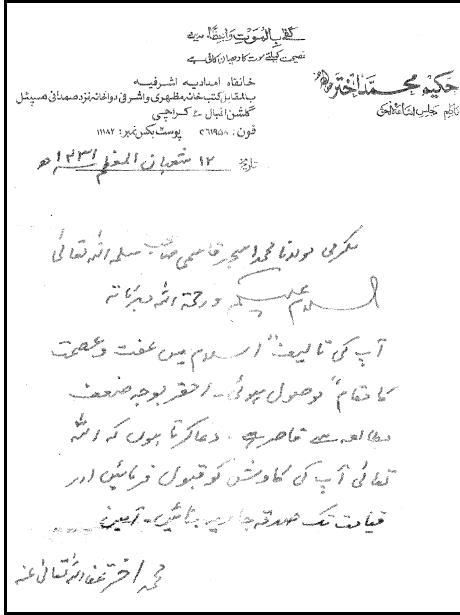 كفىٰ بالموت واعظًا، الحدیث
نصیحت کیلئے موت کا دھیان کافی ہے
حکیم محمد اختر
ناظم مجلس اشاعۃ الحق
خانقاہ امدادیہ اشرفیہ
بالمقابل کتب خانہ مظہری و اشرفی دواخانہ نزد صمدانی ہسپتال
گلشن اقبال ۲ کراچی
فون: ۴۶۱۹۵۸ پوسٹ بکس نمبر: ۱۱۱۸۲
تاریخ ۱۲ شعبان المعظم ۱۴۳۱ھ
مکرمی مولانا محمد اسجد قاسمی صاحب سلمہ اللہ تعالیٰ
السلام علیکم ورحمۃ اللہ وبرکاتہ
آپ کی تالیف "اسلام میں عفت و عصمت
کا مقام" موصول ہوئی۔ احقر بوجہ ضعف
مطالعہ سے قاصر ہے۔ دعا کرتا ہوں کہ اللہ
تعالیٰ آپ کی کاوش کو قبول فرمائیں اور
قیامت تک صدقہ جاریہ بنائیں۔ آمین
محمد اختر عفا اللہ تعالیٰ عنہ